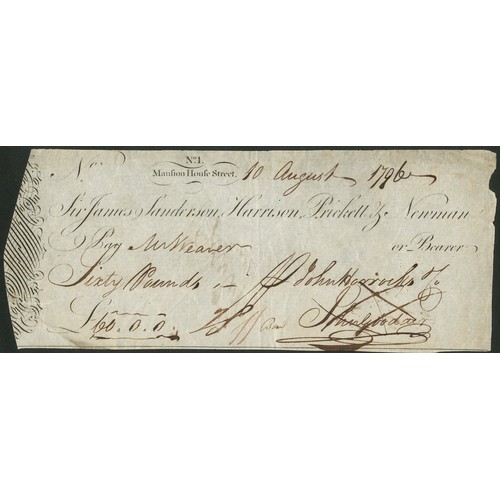 No. 1
No. Mansion House Street, 10 August 1796
Sir James Sanderson, Harrison, Prickett & Newman
Pay Mr Weaver or Bearer
Sixty Pounds John Horrocks
£60.0.0